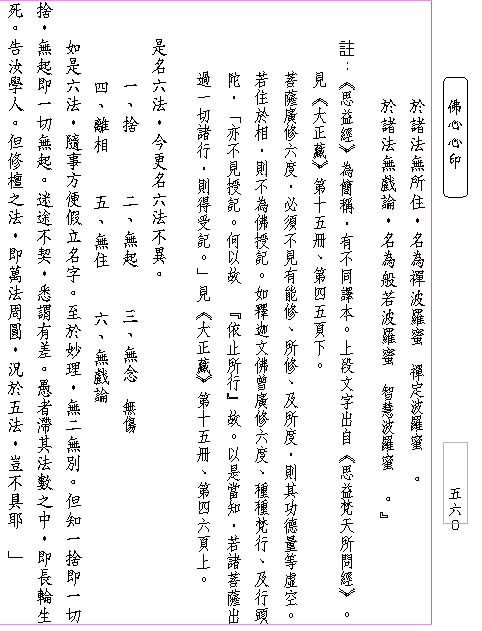 佛心心印
五六０
於諸法無所住，名為禪波羅蜜　禪定波羅蜜　。
於諸法無戲論，名為般若波羅蜜　智慧波羅蜜　。』
註：《思益經》為簡稱，有不同譯本。上段文字出自《思益梵天所問經》。
見《大正藏》第十五冊、第四五頁下。
菩薩廣修六度，必須不見有能修、所修、及所度，則其功德量等虛空。
若住於相，則不為佛授記。如釋迦文佛曾廣修六度、種種梵行、及行頭
陀，「亦不見授記。何以故　『依止所行』故。以是當知，若諸菩薩出
過一切諸行，則得受記。」見《大正藏》第十五冊、第四六頁上。
是名六法，今更名六法不異。
一、捨　　二、無起　　三、無念　無傷
四、離相　　五、無住　　六、無戲論
如是六法，隨事方便假立名字。至於妙理，無二無別。但知一捨即一切
捨，無起即一切無起。迷途不契，悉謂有差。愚者滯其法數之中，即長輪生
死。告汝學人。但修檀之法，即萬法周圓，況於五法，豈不具耶　」